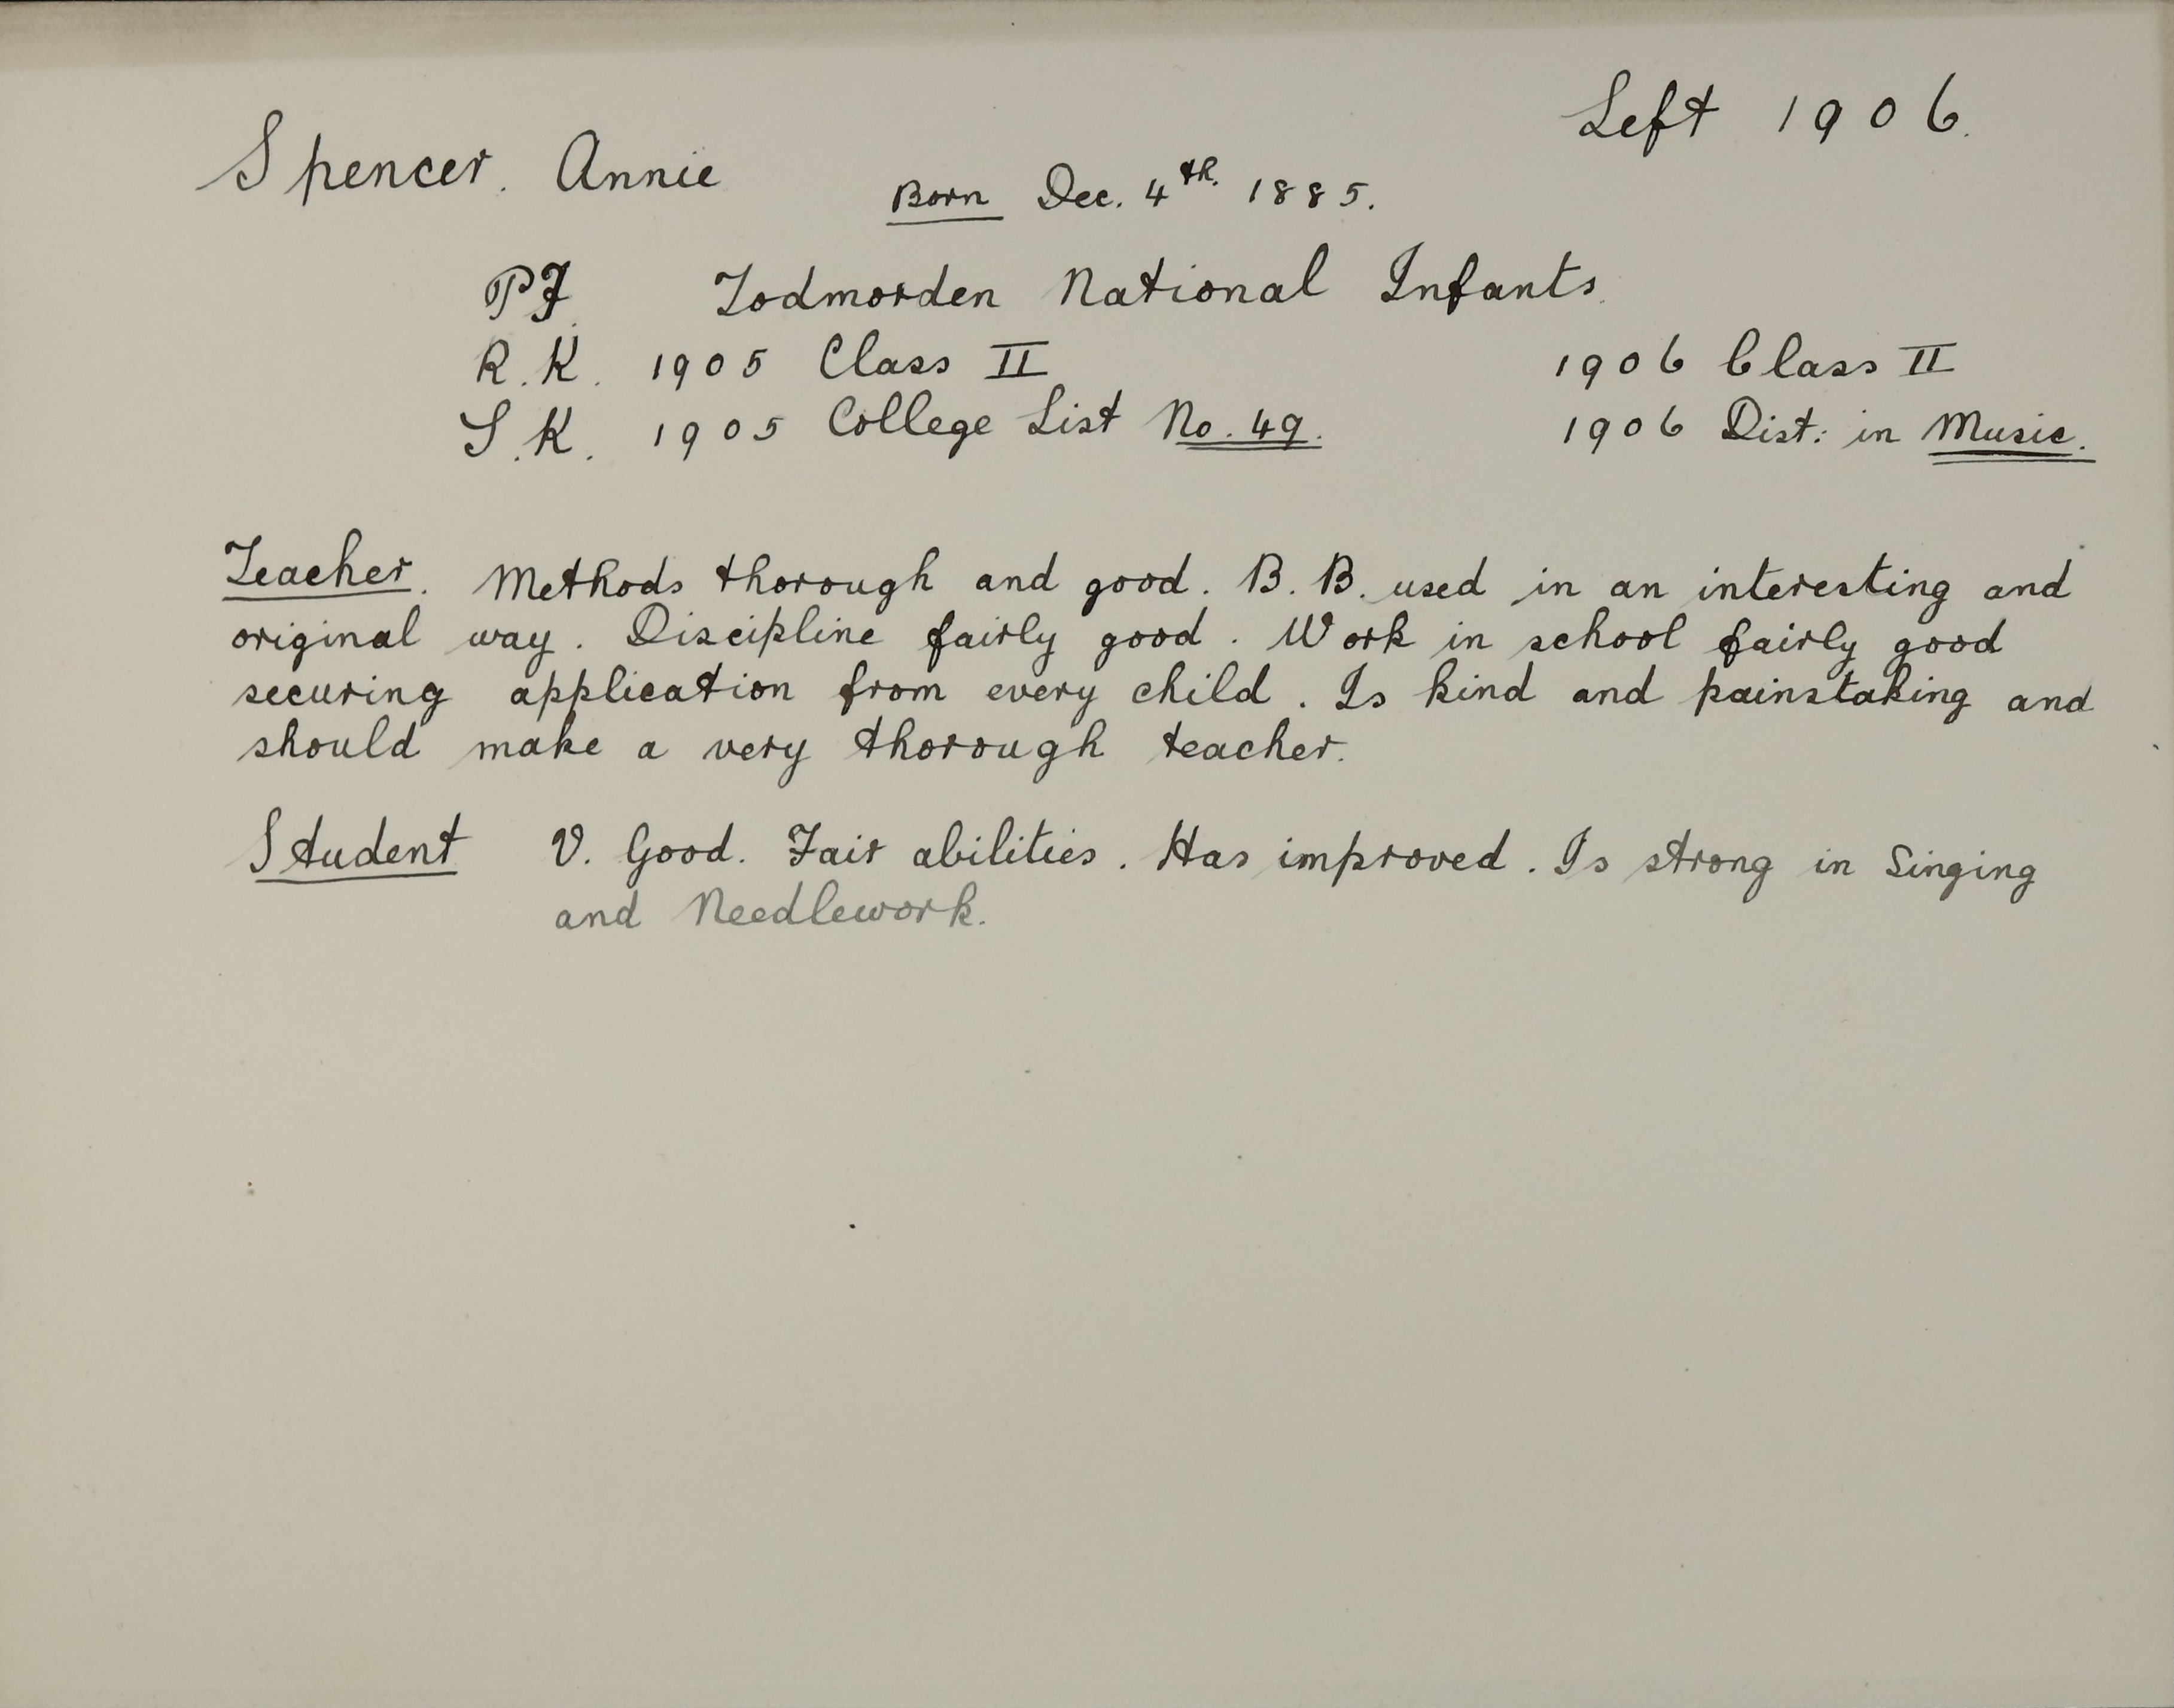 Left 1906.
Spencer. Annie Born Dec. 4th. 1885.
PT. Todmorden National Infants.
R.K. 1905 Class II 1906 Class II
S.K. 1905 College List No. 49. 1906 Dist: in Music.
Teacher. Methods thorough and good. B.B. used in an interesting and
original way. Discipline fairly good. Work in school fairly good
securing application from every child. Is kind and painstaking and
should make a very thorough teacher.
Student V. Good. Fair abilities. Has improved. Is strong in Singing
and Needlework.